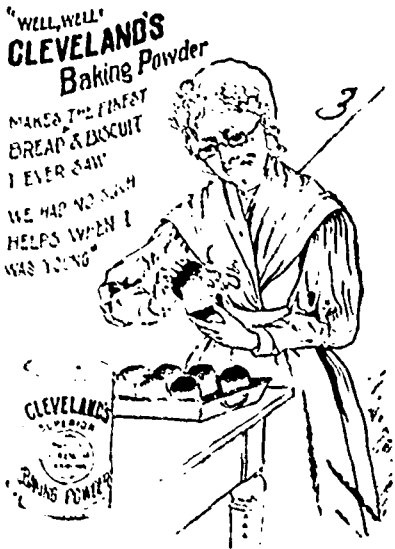 "WELL, WELL"
CLEVELAND'S
Baking Powder
MAKES THE FINEST
BREAD & BISCUIT
I EVER SAW
WE HAD NO SUCH
HELPS WHEN I
WAS YOUNG"
3
CLEVELAND'S
SUPERIOR
BAKING POWDER